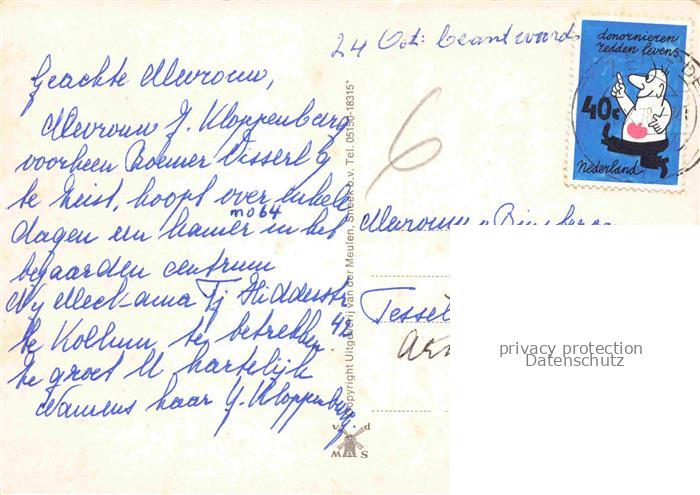 24 Oct: beantwoord
donornieren
redden levens
40c
Nederland
Geachte Mevrouw,
Mevrouw J. Kloppenburg
voorheen Roemer Visserl 9
te Zeist, hoopt over enkele
dagen een kamer in het
no 64
bejaarden centrum
Tj Hiddesstr
42
te Kollum, te betrekken.
te groet U hartelijk
Namens haar J. Kloppenburg.
6
Mevrouw v
Tessel
Copyright Uitgeverij van der Meulen, Sneek b.v. Tel. 05150-18315*
v d
MAS
privacy protection
Datenschutz